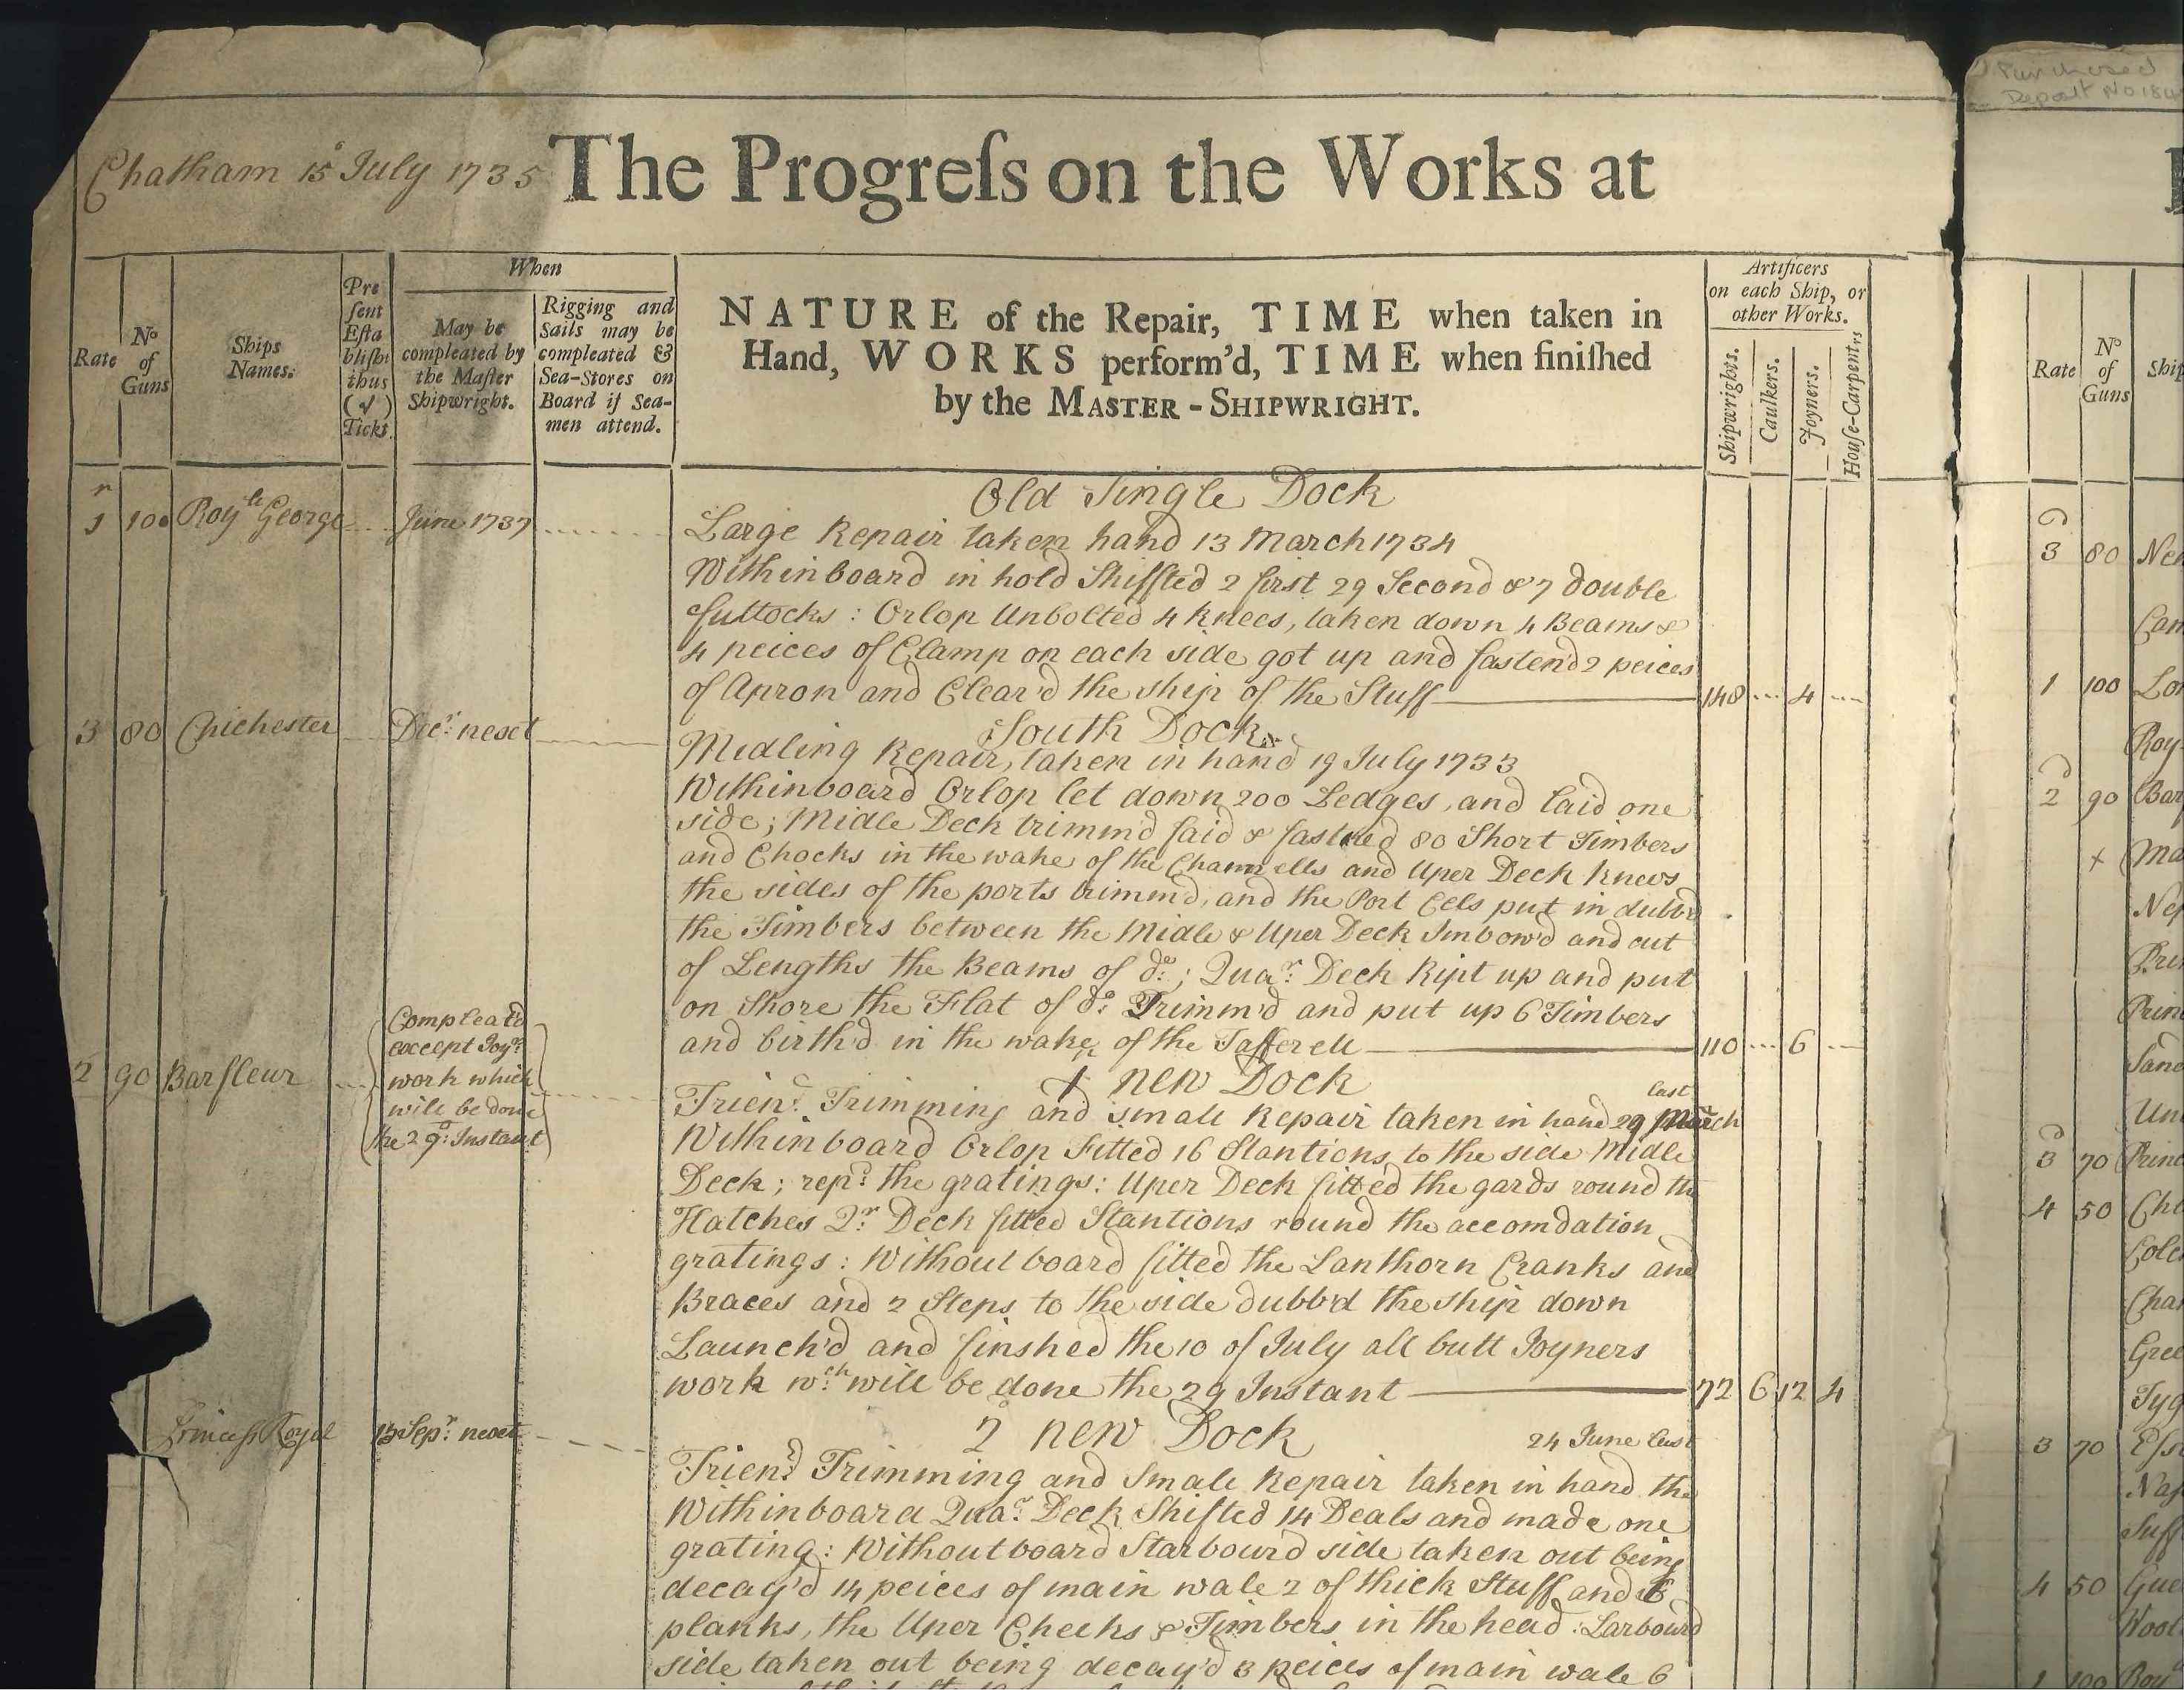 Purchased
Depart No 184
Chatham 15 July 1735
The Progreſs on the Works at
Rate
No of Guns
Ships Names.
Preſent Eſtabliſht thus (√) Tickt.
When
May be compleated by the Maſter Shipwright.
Rigging and Sails may be compleated & Sea-Stores on Board if Sea-men attend.
NATURE of the Repair, TIME when taken in
Hand, WORKS perform'd, TIME when finiſhed
by the MASTER-SHIPWRIGHT.
Artificers
on each Ship, or
other Works.
Shipwrights.
Caulkers.
Joyners.
Houſe-Carpentrs
Rate
No of Guns
Old Single Dock
1 100 Royle George June 1737
Large Repair taken hand 13 March 1734
Withinboard in hold Shiffted 2 first 29 Second & 7 double
futtocks: Orlop Unbolted 4 knees, taken down 4 Beams &
4 peices of Clamp on each side got up and fastend 2 peices
of Apron and Clear'd the ship of the Stuff 148 4
South Dock
3 80 Chichester Decr: next
Midling Repair, taken in hand 19 July 1733
Withinboard Orlop let down 200 Ledges, and laid one
side; Midle Deck trimm'd said & fastned 80 Short Timbers
and Chocks in the wake of the Channells and Uper Deck knees
the sides of the ports trimm'd, and the Port Cels put in dubb'd
the Timbers between the Midle & Uper Deck Inbow'd and cut
of Lengths the Beams of do:; Quar: Deck Ript up and put
on Shore the Flat of do: Trimm'd and put up 6 Timbers
and birth'd in the wake of the Tafferell 110 6
1 new Dock
2 90 Barfleur
Compleated
except Joyrs
work which
will be done
the 29: Instant
last
Triend: Trimming and small Repair taken in hand 29 March
Withinboard Orlop Fitted 16 Stantions to the side Midle
Deck; repd: the gratings: Uper Deck fitted the gards round the
Hatches Qr: Deck fitted Stantions round the accomdation
gratings: Without board fitted the Lanthorn Cranks and
Braces and 2 Steps to the side dubb'd the ship down
Launch'd and finshed the 10 of July all butt Joyners
work wch: will be done the 29 Instant 72 6 12 4
2 new Dock
24 June last
Princess Royal 15 Sepr: next
Triend: Trimming and Small Repair taken in hand the
Withinboard Quar: Deck Shifted 14 Deals and made one
grating: Without board Starbourd side taken out being
decay'd 14 peices of main wale 2 of thick Stuff and 6
planks, the Uper Cheeks & Timbers in the head: Larbourd
side taken out being decay'd 3 peices of main wale 6
3 80
1 100
2 90
3 70
4 50
3 70
4 50
1 100